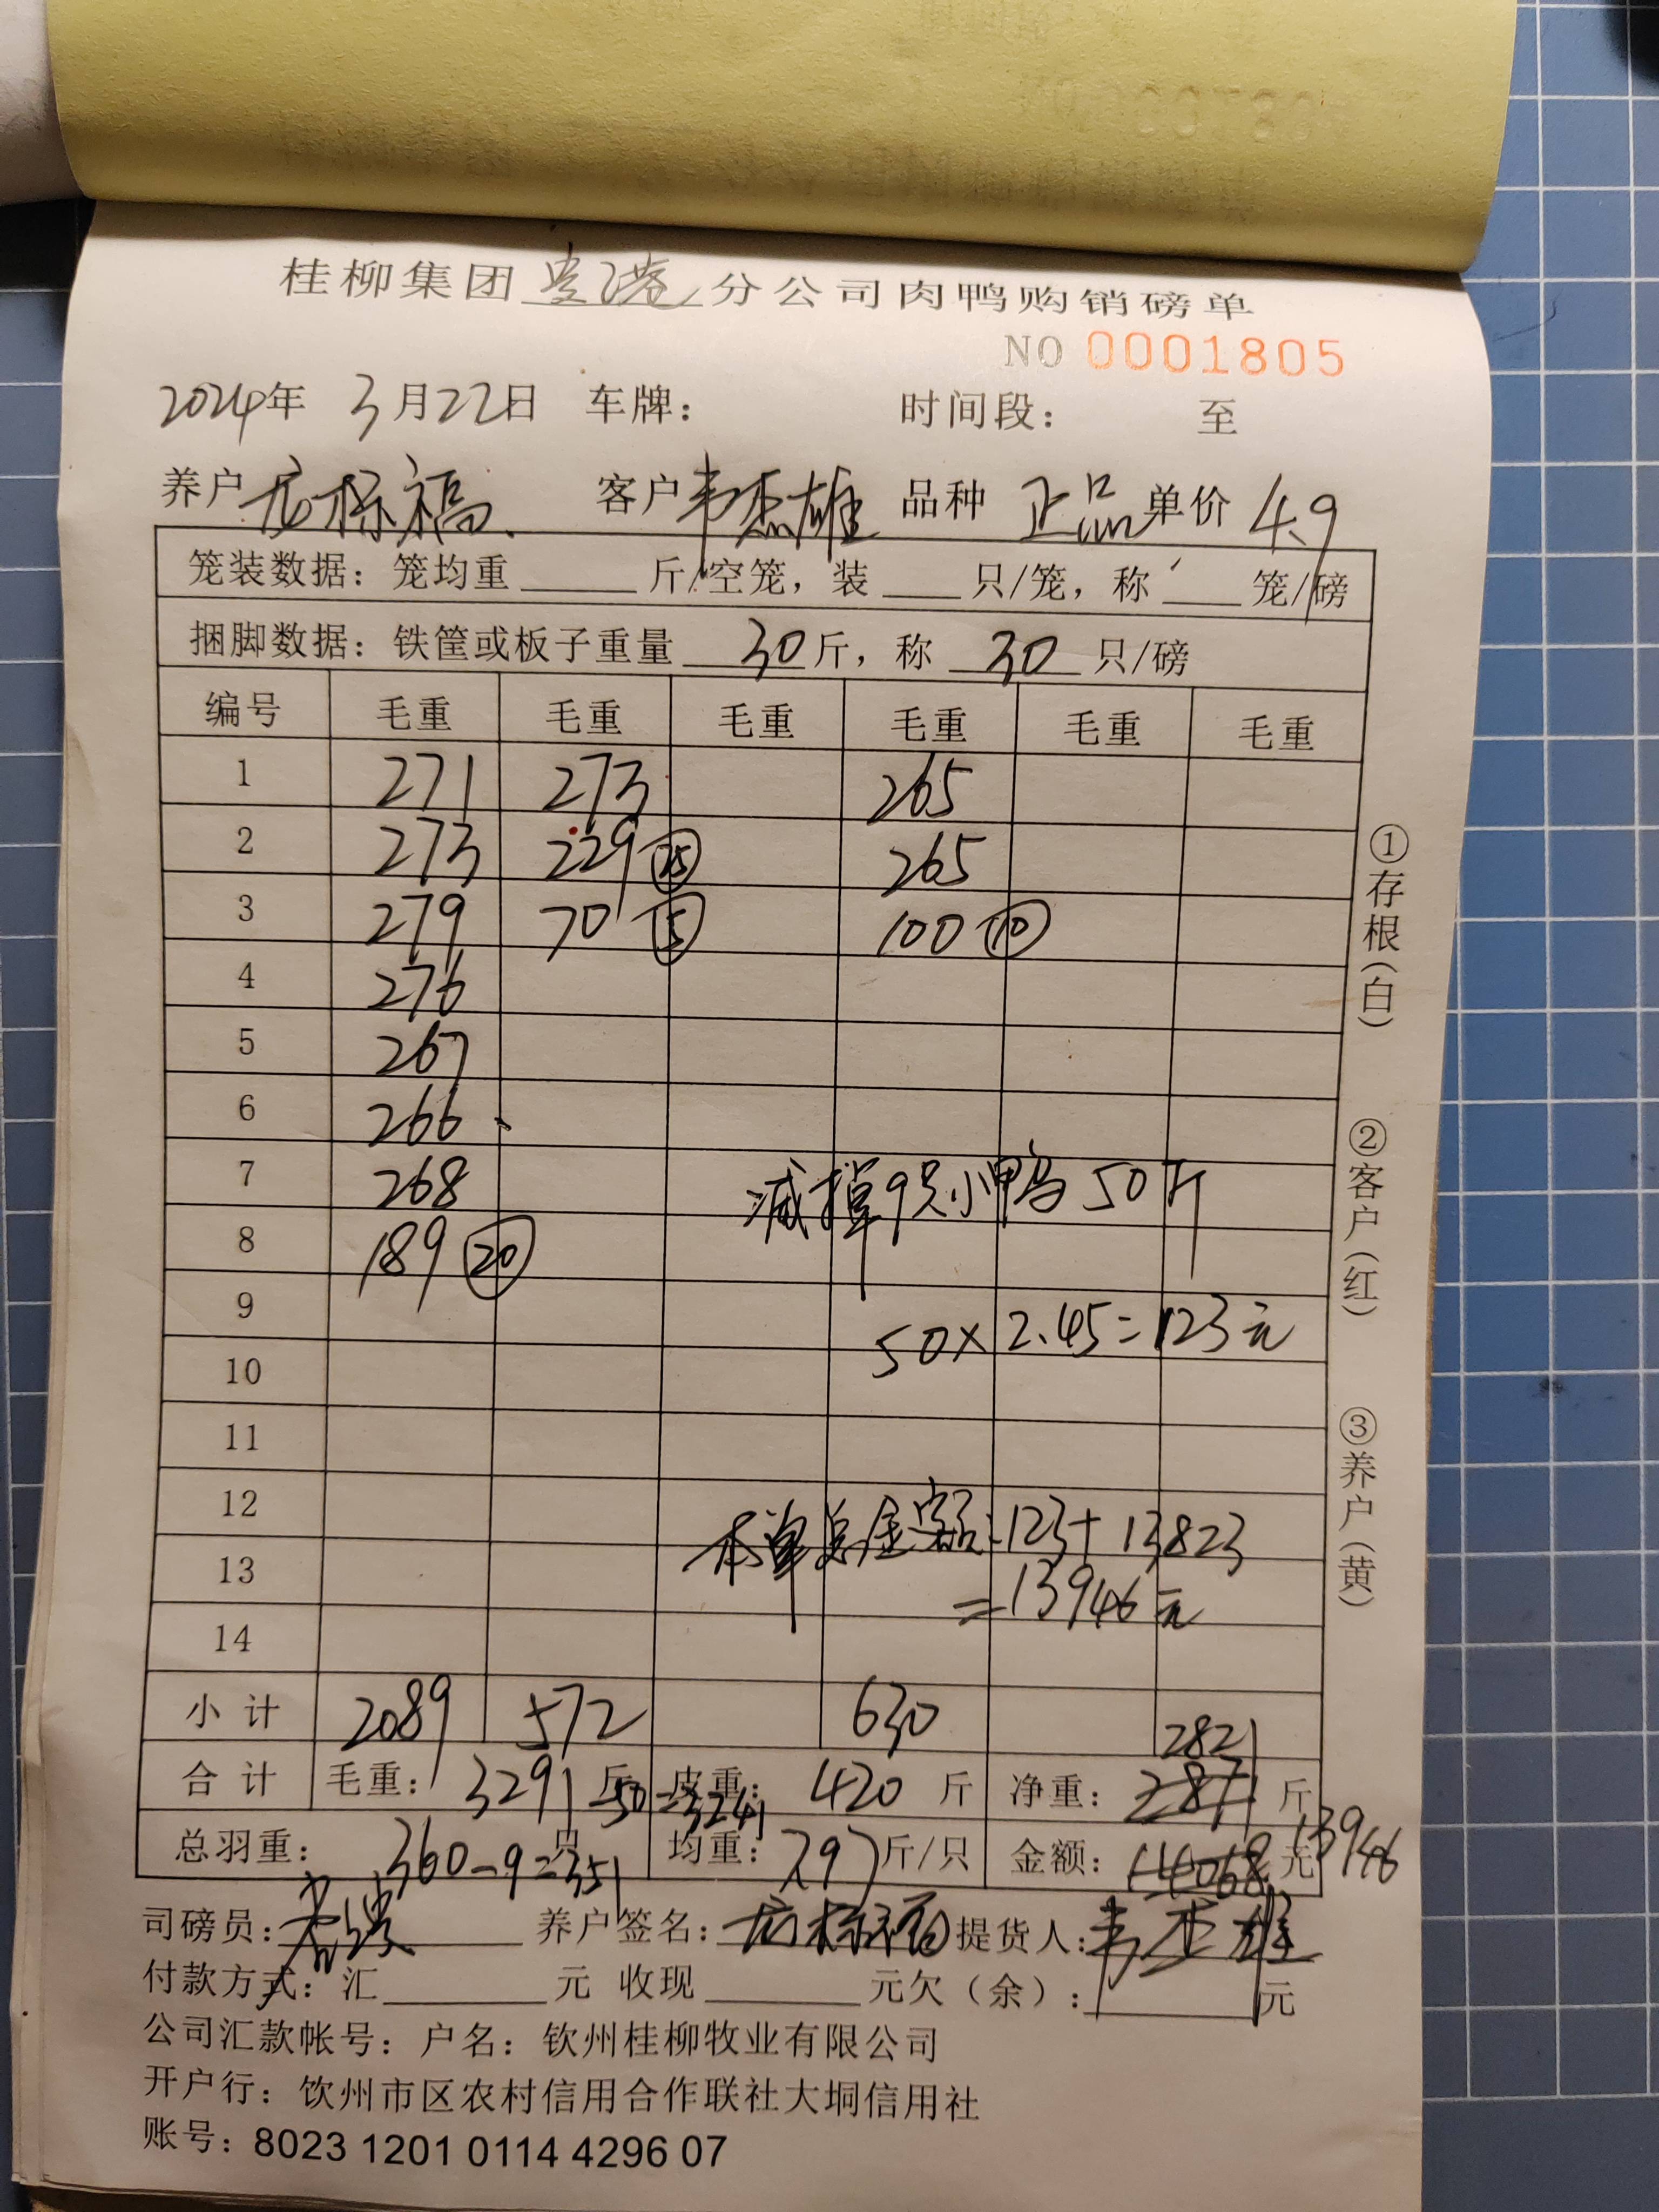 桂柳集团贵港分公司肉鸭购销磅单
NO 0001805
2024年 3月22日 车牌： 时间段： 至
养户 标福 客户 韦杰雄 品种 正品 单价 4.9
笼装数据：笼均重 斤/空笼，装 只/笼，称 笼/磅
捆脚数据：铁筐或板子重量 30 斤，称 30 只/磅
编号 毛重 毛重 毛重 毛重 毛重 毛重
1 271 273 265
2 273 229 25 265
3 279 70 5 100 10
4 276
5 267
6 266
7 268 减掉9只小鸭50斤
8 189 20
9 50×2.45=123元
10
11
12 本单总金额:123+13823
13 =13946元
14
小计 2089 572 630
2821
合计 毛重： 3291 斤 -50=3241 皮重： 420 斤 净重： 2871 斤
总羽重： 360-9=351 只 均重： 7.97 斤/只 金额： 14068 元 13946
司磅员： 养户签名： 标福 提货人： 韦杰雄
付款方式：汇 元 收现 元欠（余）： 元
公司汇款帐号：户名：钦州桂柳牧业有限公司
开户行：饮州市区农村信用合作联社大垌信用社
账号：8023 1201 0114 4296 07
①存根（白）
②客户（红）
③养户（黄）